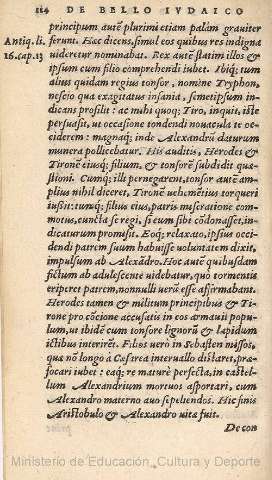 114 DE BELLO IVDAICO
principum autē plurimi etiam palàm grauiter
Antiq. li. ferunt. Hæc dicens, simul eos quibus res indigna
16. cap. 13 uideretur nominabat. Rex autē statim illos &
ipsum cum filio comprehendi iubet. Ibiq; tum
alius quidam regius tonsor, nomine Tryphon,
nescio qua exagitatus insania, semetipsum in-
dicans prosilit: ac mihi quoq; Tiro, inquit, iste
persuasit, ut occasione tondendi nouacula te oc-
ciderem: magnaq; inde Alexandrū daturum
munera pollicebatur. His auditis, Herodes &
Tironē eiusq; filium, & tonsorē subdidit quæ-
stioni. Cumq; illi pernegarent, tonsor autē am-
plius nihil diceret, Tironē uehemētius torqueri
iussit: tumq; filius eius, patris miseratione com-
motus, cuncta se regi, si eum sibi cōdonasset, in-
dicaturum promisit. Eoq; relaxato, ipsius occi-
dendi patrem suum habuisse uoluntatem dixit,
impulsum ab Alexādro. Hoc autē quibusdam
fictum ab adulescente uidebatur, quò tormentis
eriperet patrem, nonnulli uerū esse affirmabant.
Herodes tamen & militum principibus & Ti-
rone pro cōcione accusatis in eos armauit popu-
lum, ut ibidē cum tonsore lignorū & lapidum
ictibus interirēt. Filios uerò in Sebasten missos,
quæ nō longò à Cæsarea interuallo distaret, præ-
focari iubet: eaq; re maturè perfecta, in castel-
lum Alexandrium mortuos asportari, cum
Alexandro materno auo sepeliendos. Hic finis
Aristobulo & Alexandro uitæ fuit.
De con
Ministerio de Educación, Cultura y Deporte